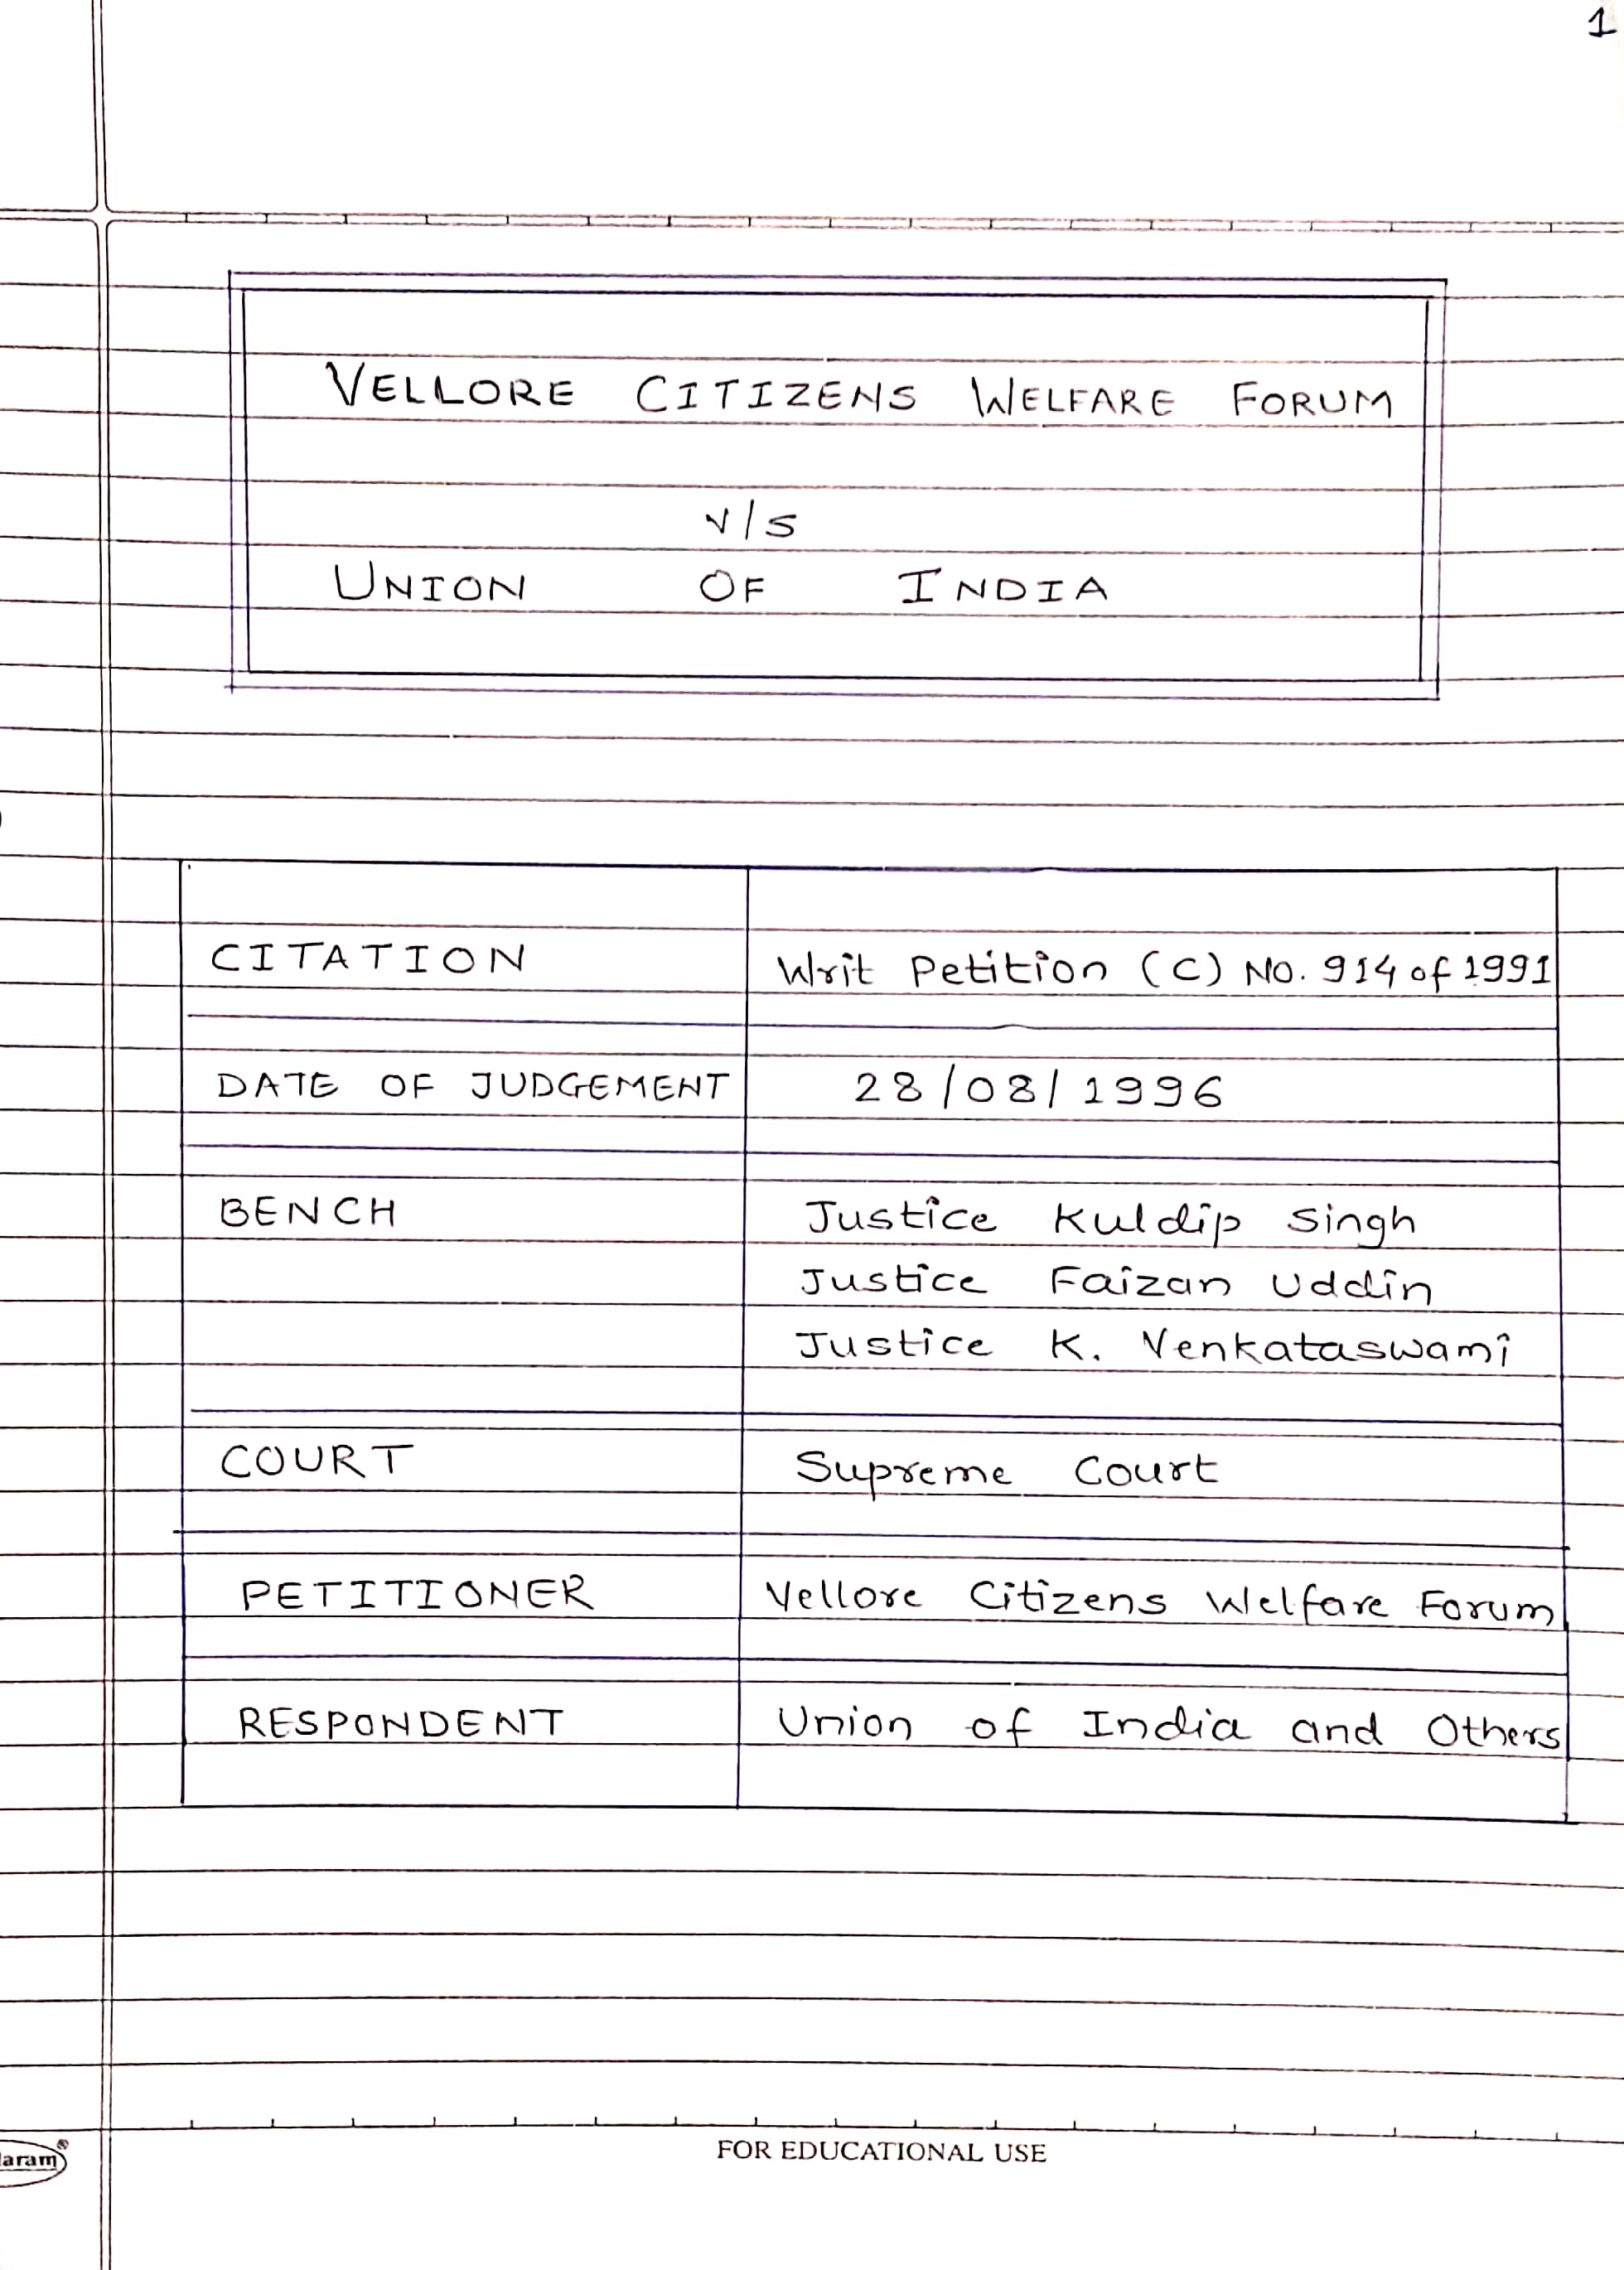 1
VELLORE CITIZENS WELFARE FORUM
v/s
UNION OF INDIA
CITATION Writ Petition (C) No. 914 of 1991
DATE OF JUDGEMENT 28/08/1996
BENCH Justice Kuldip Singh
Justice Faizan Uddin
Justice K. Venkataswami
COURT Supreme Court
PETITIONER Vellore Citizens Welfare Forum
RESPONDENT Union of India and Others
aram®
FOR EDUCATIONAL USE